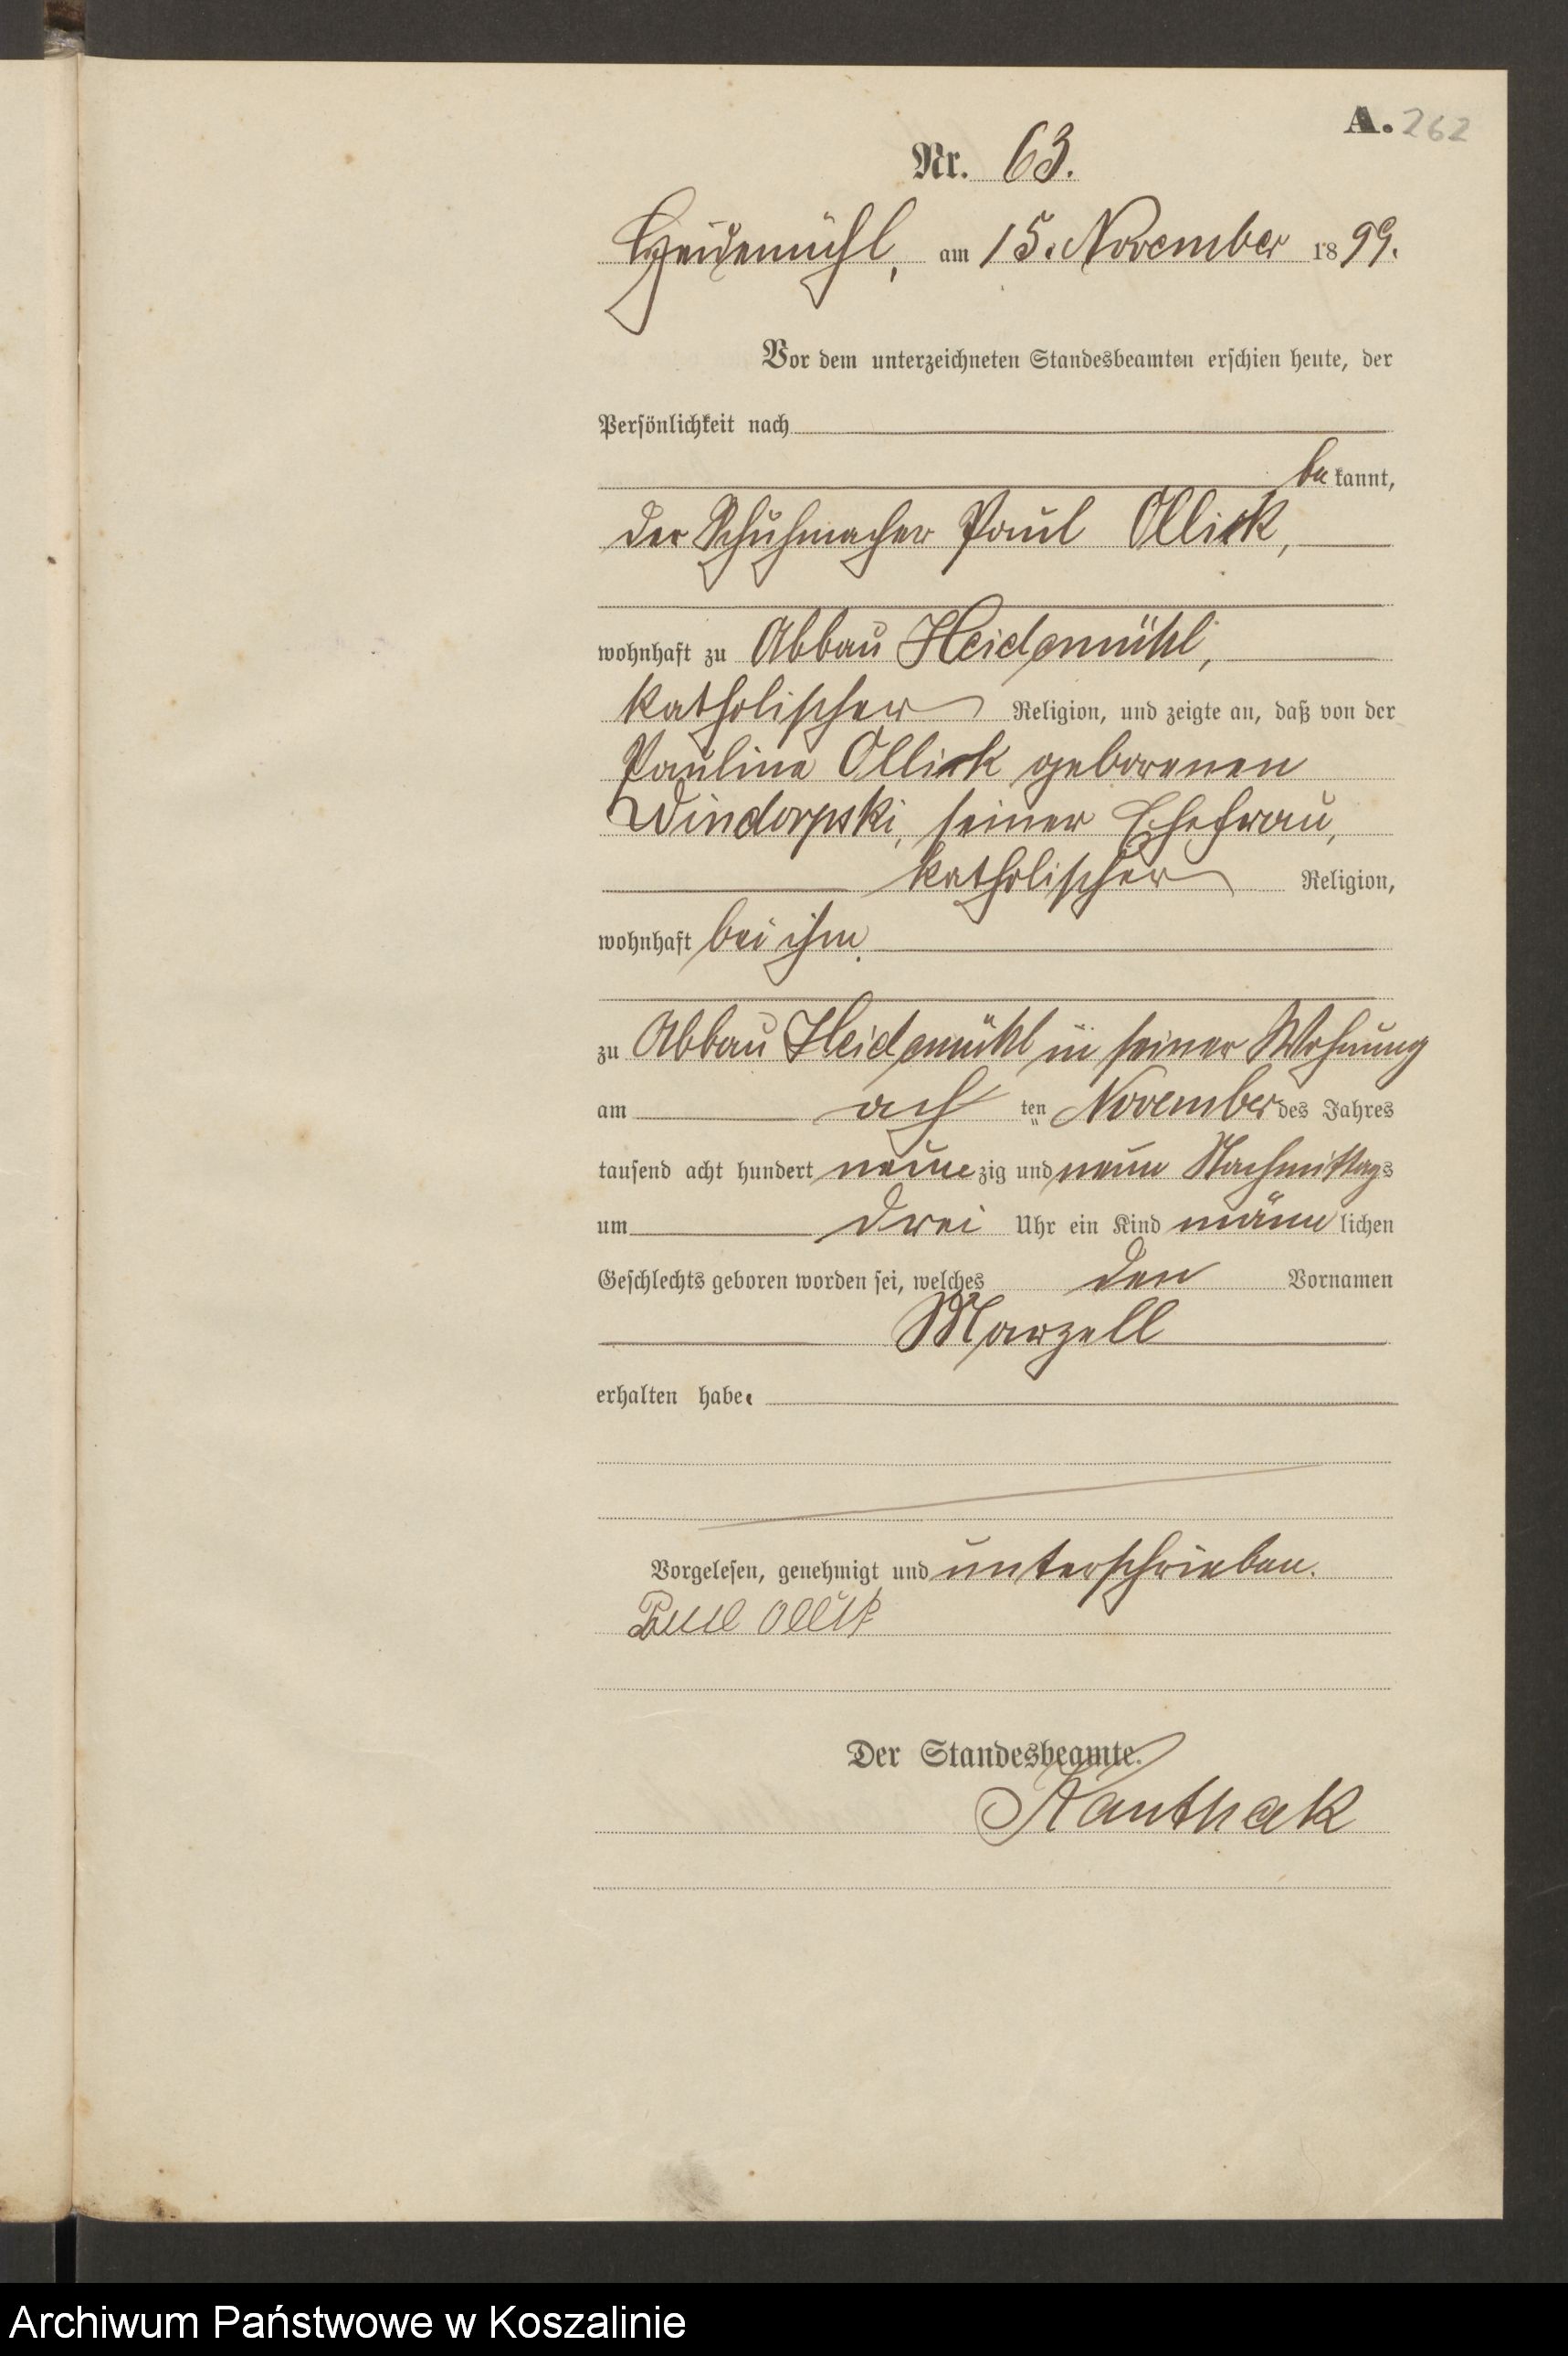 A. 262
Nr. 63.
Heidemühl, am 15. November 1899.
Vor dem unterzeichneten Standesbeamten erschien heute, der
Persönlichkeit nach
be kannt,
der Schuhmacher Paul Ollick,
wohnhaft zu Abbau Heidemühl,
katholischer Religion, und zeigte an, daß von der
Pauline Ollick geborenen
Windorpski, seiner Ehefrau,
katholischer Religion,
wohnhaft bei ihm
zu Abbau Heidemühl in seiner Wohnung
am ach ten November des Jahres
tausend acht hundert neun zig und neun Nachmittags
um drei Uhr ein Kind männ lichen
Geschlechts geboren worden sei, welches den Vornamen
Marzell
erhalten habe.
Vorgelesen, genehmigt und unterschrieben.
Paul Ollick
Der Standesbeamte.
Kanthak
Archiwum Państwowe w Koszalinie